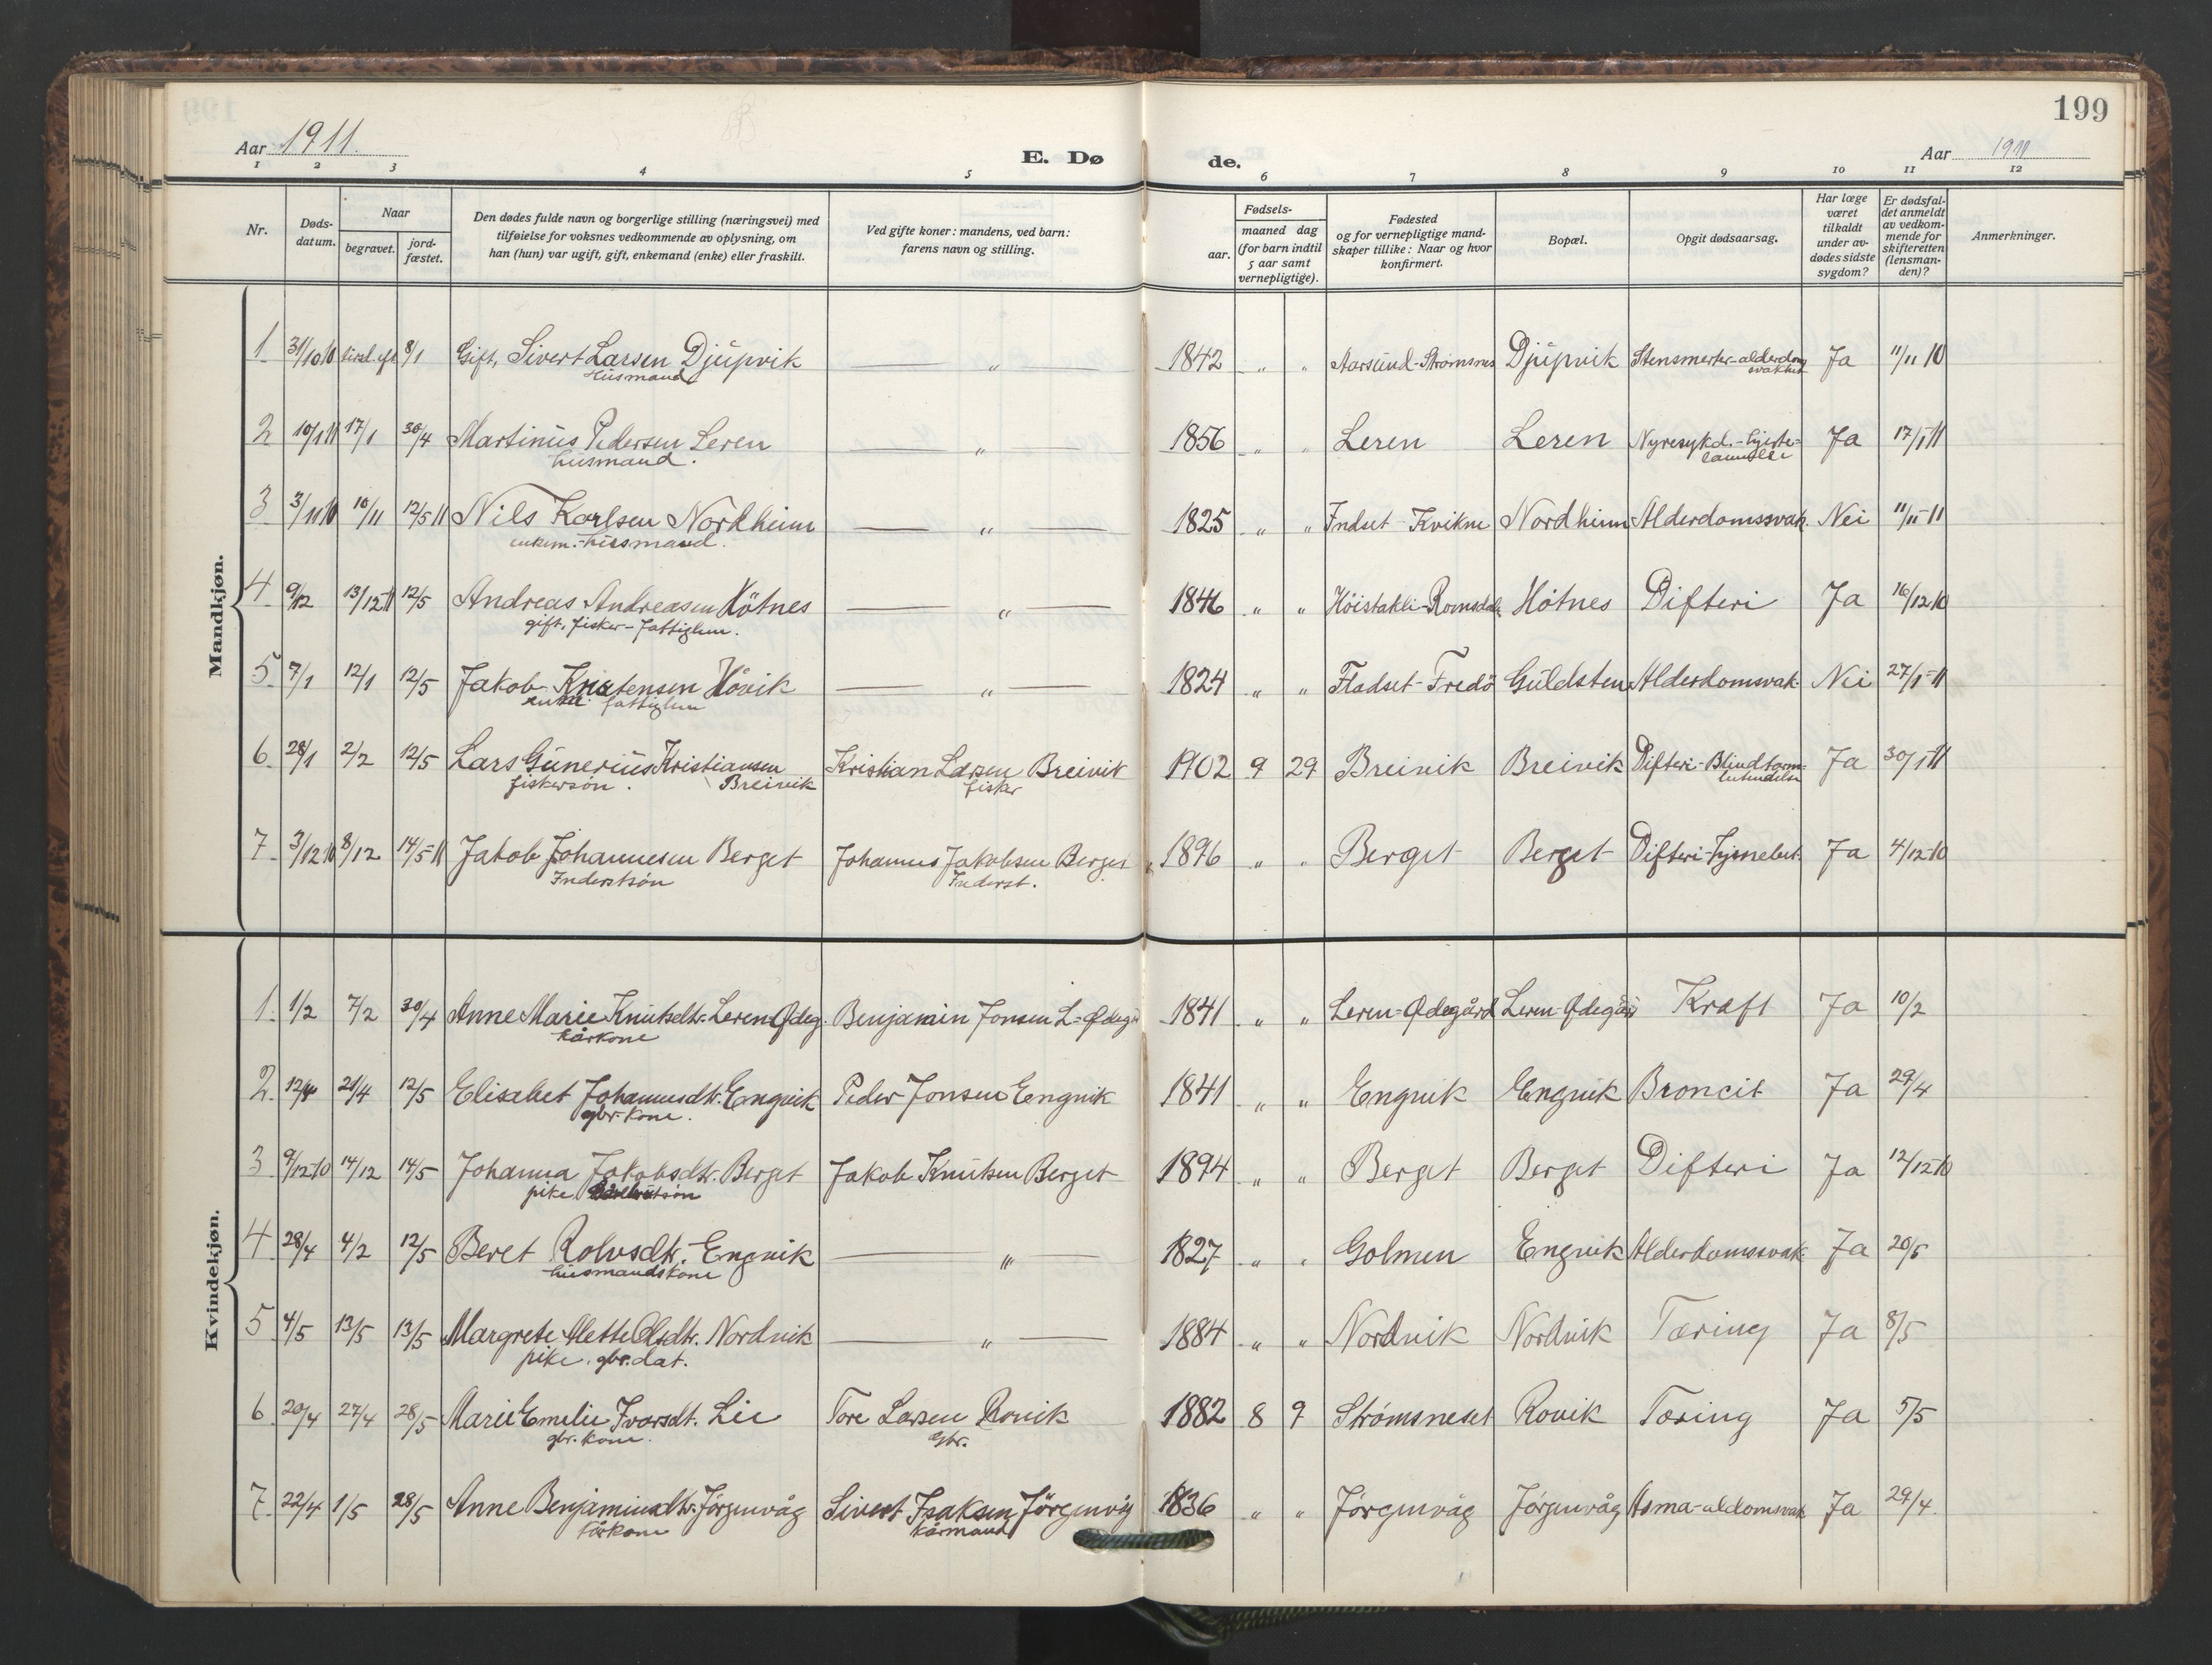 199
Aar 1911.
E. Dø de.
Aar 1911
1 2 3 4 5 6 7 8 9 10 11 12
Nr.
Døds-
datum.
Naar
begravet.
jord-
fæstet.
Den dødes fulde navn og borgerlige stilling (næringsvei) med
tilføielse for voksnes vedkommende av oplysning, om
han (hun) var ugift, gift, enkemand (enke) eller fraskilt.
Ved gifte koner: mandens, ved barn:
farens navn og stilling.
aar.
Fødsels-
maaned dag
(for barn indtil
5 aar samt
vernepligtige).
Fødested
og for vernepligtige mand-
skaper tillike: Naar og hvor
konfirmert.
Bopæl.
Opgit dødsaarsag.
Har læge
været
tilkaldt
under av-
dødes sidste
sygdom?
Er dødsfal-
det anmeldt
av vedkom-
mende for
skifteretten
(lensman-
den)?
Anmerkninger.
Mandkjøn.
1 31/10 10 8/1 Gift, Sivert Larsen Djupvik — " — 1842 " " Aarsund-Strømsnes Djupvik Stensmerter-alderdoms Ja 11/11 10
Husmand svakhet
2 10/1 11 17/1 30/4 Martinus Pedersen Leren — " — 1856 " " Leren Leren Nyresykd.-hjerte- Ja 17/1 11
husmand. lammelse
3 3/11 10 10/11 12/5 11 Nils Karlsen Nordheim — " — 1825 " " Indset-Kvikne Nordheim Alderdomssvak. Nei 11/11-11
enkem.-husmand.
4 9/12 13/12 12/5 Andreas Andreasen Hötnes — " — 1846 " " Höistakli-Romsdal Hötnes Difteri Ja 16/12 10
gift, fisker-fattiglem.
5 7/1 12/1 12/5 Jakob Kristensen Hövik — " — 1824 " " Fladset-Fredö Guldsten Alderdomsvak. Nei 27/1-11
fattiglem
6 28/1 2/2 12/5 Lars Gunerius Kristiansen Kristian Larsen Breivik 1902 9 29 Breivik Breivik Difteri-Blindtarm- Ja 30/1 11
fiskersön. Breivik fisker
7 3/12 10 8/12 14/5-11 Jakob Johannesen Berget Johannes Jakobsen Berget 1896 " " Berget Berget Difteri-hjernebet. Ja 4/12-10
Inderstsön Inderst.
Kvindekjøn.
1. 1/2 7/2 30/4 Anne Marie Knutsdtr. Leren Ødeg. Benjamin Jonsen L-Ødegår 1841 " " Leren-Ødegård Leren-Ødegård Kræft Ja 10/2
kårkone
2 21/4 12/5 Elisabet Johannesdtr. Engvik Peder Jonsen Engvik 1841 " " Engvik Engvik Broncit Ja 29/4
gbr-kone.
3 9/12-10 14/12 14/5 Johanna Jakobsdtr. Berget Jakob Knutsen Berget 1894 " " Berget Berget Difteri Ja 12/12-10
pike
4 28/4 4/2 12/5 Beret Rolvsdtr. Engvik — " — 1827 " " Golmen Engvik Alderdomssvak Ja 20/5
husmandskone
5 4/5 13/5 13/5 Margrete Mette Olsdtr. Nordvik — " — 1884 " " Nordvik Nordvik Tæring Ja 8/5
pike. gbr.dat.
6 20/4 27/4 28/5 Marie Emelie Ivarsdt. Lie Tore Larsen Rovik 1882 8 9 Strømsneset Rovik Tæring Ja 5/5
gbr. kone. Gbr.
7 22/4 1/5 28/5 Anne Benjaminsdtr. Jörgenvåg Sivert Isaksen Jörgenvåg 1836 " " Jörgenvåg Jörgenvåg Asma-aldomsvak Ja 29/4.
kårkone kårmand